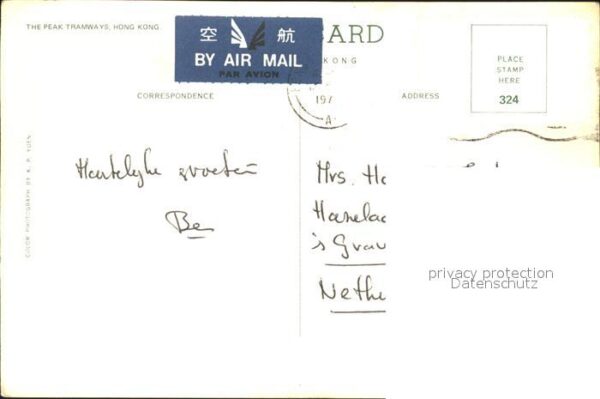 THE PEAK TRAMWAYS, HONG KONG.
空 航
BY AIR MAIL
PAR AVION
CARD
KONG
CORRESPONDENCE
197
A
ADDRESS
PLACE
STAMP
HERE
324
COLOR PHOTOGRAPH BY K. P. YUEN
Hartelyke groeten
Be
Mrs. Ha
's Grav
Nethe
privacy protection
Datenschutz